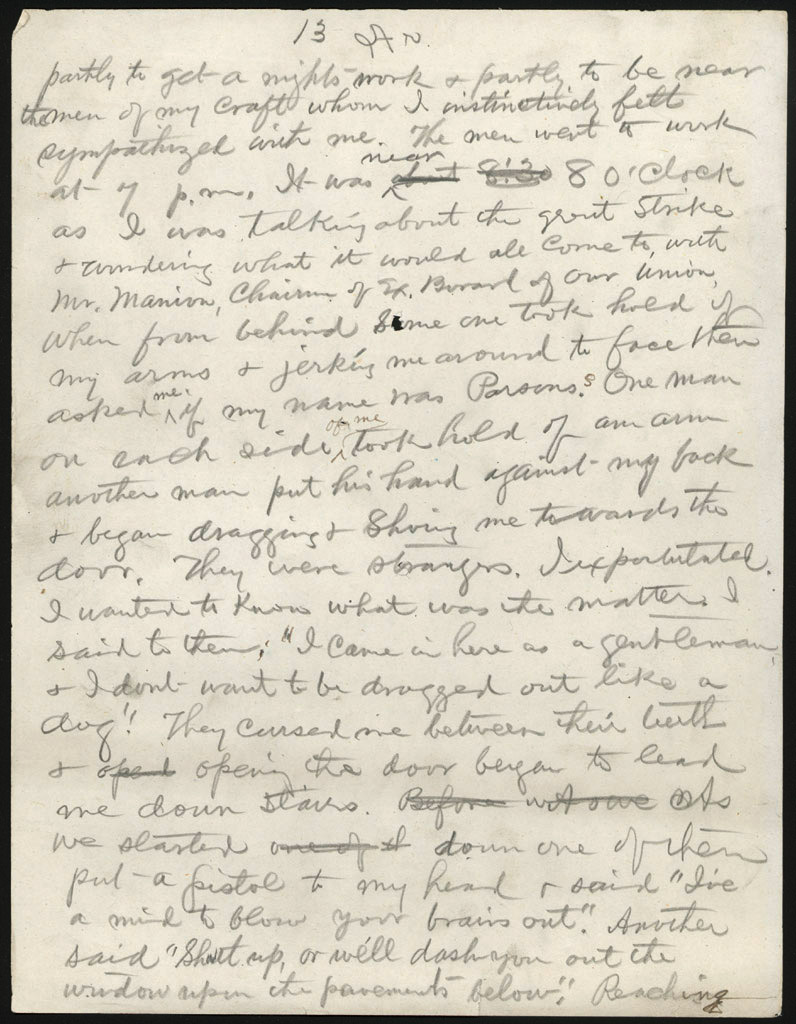 13 A
partly to get a nights work & partly to be near
the men of my Craft whom I instinctively felt
sympathized with me. The men went to work
at 7 p.m. It was near about 8:30 8 O'Clock
as I was talking about the great Strike
& wondering what it would all Come to, with
Mr. Manion, Chairm. of Ex. Board of our Union,
when from behind Some one took hold of
my arms & jerking me around to face them
asked me if my name was Parsons. One man
on each side of me took hold of an arm
another man put his hand against my back
& began dragging & Shoving me towards the
door. They were strangers. I expostulated.
I wanted to Know what was the matter. I
said to them; "I came in here as a gentleman,
& I dont want to be dragged out like a
dog". They cursed me between their teeth
& opend opening the door began to lead
me down stairs. Before As
we started one of th down one of them
put a pistol to my head & said "I've
a mind to blow your brains out". Another
said "Shut up, or we'll dash you out the
window upon the pavements below". Reaching